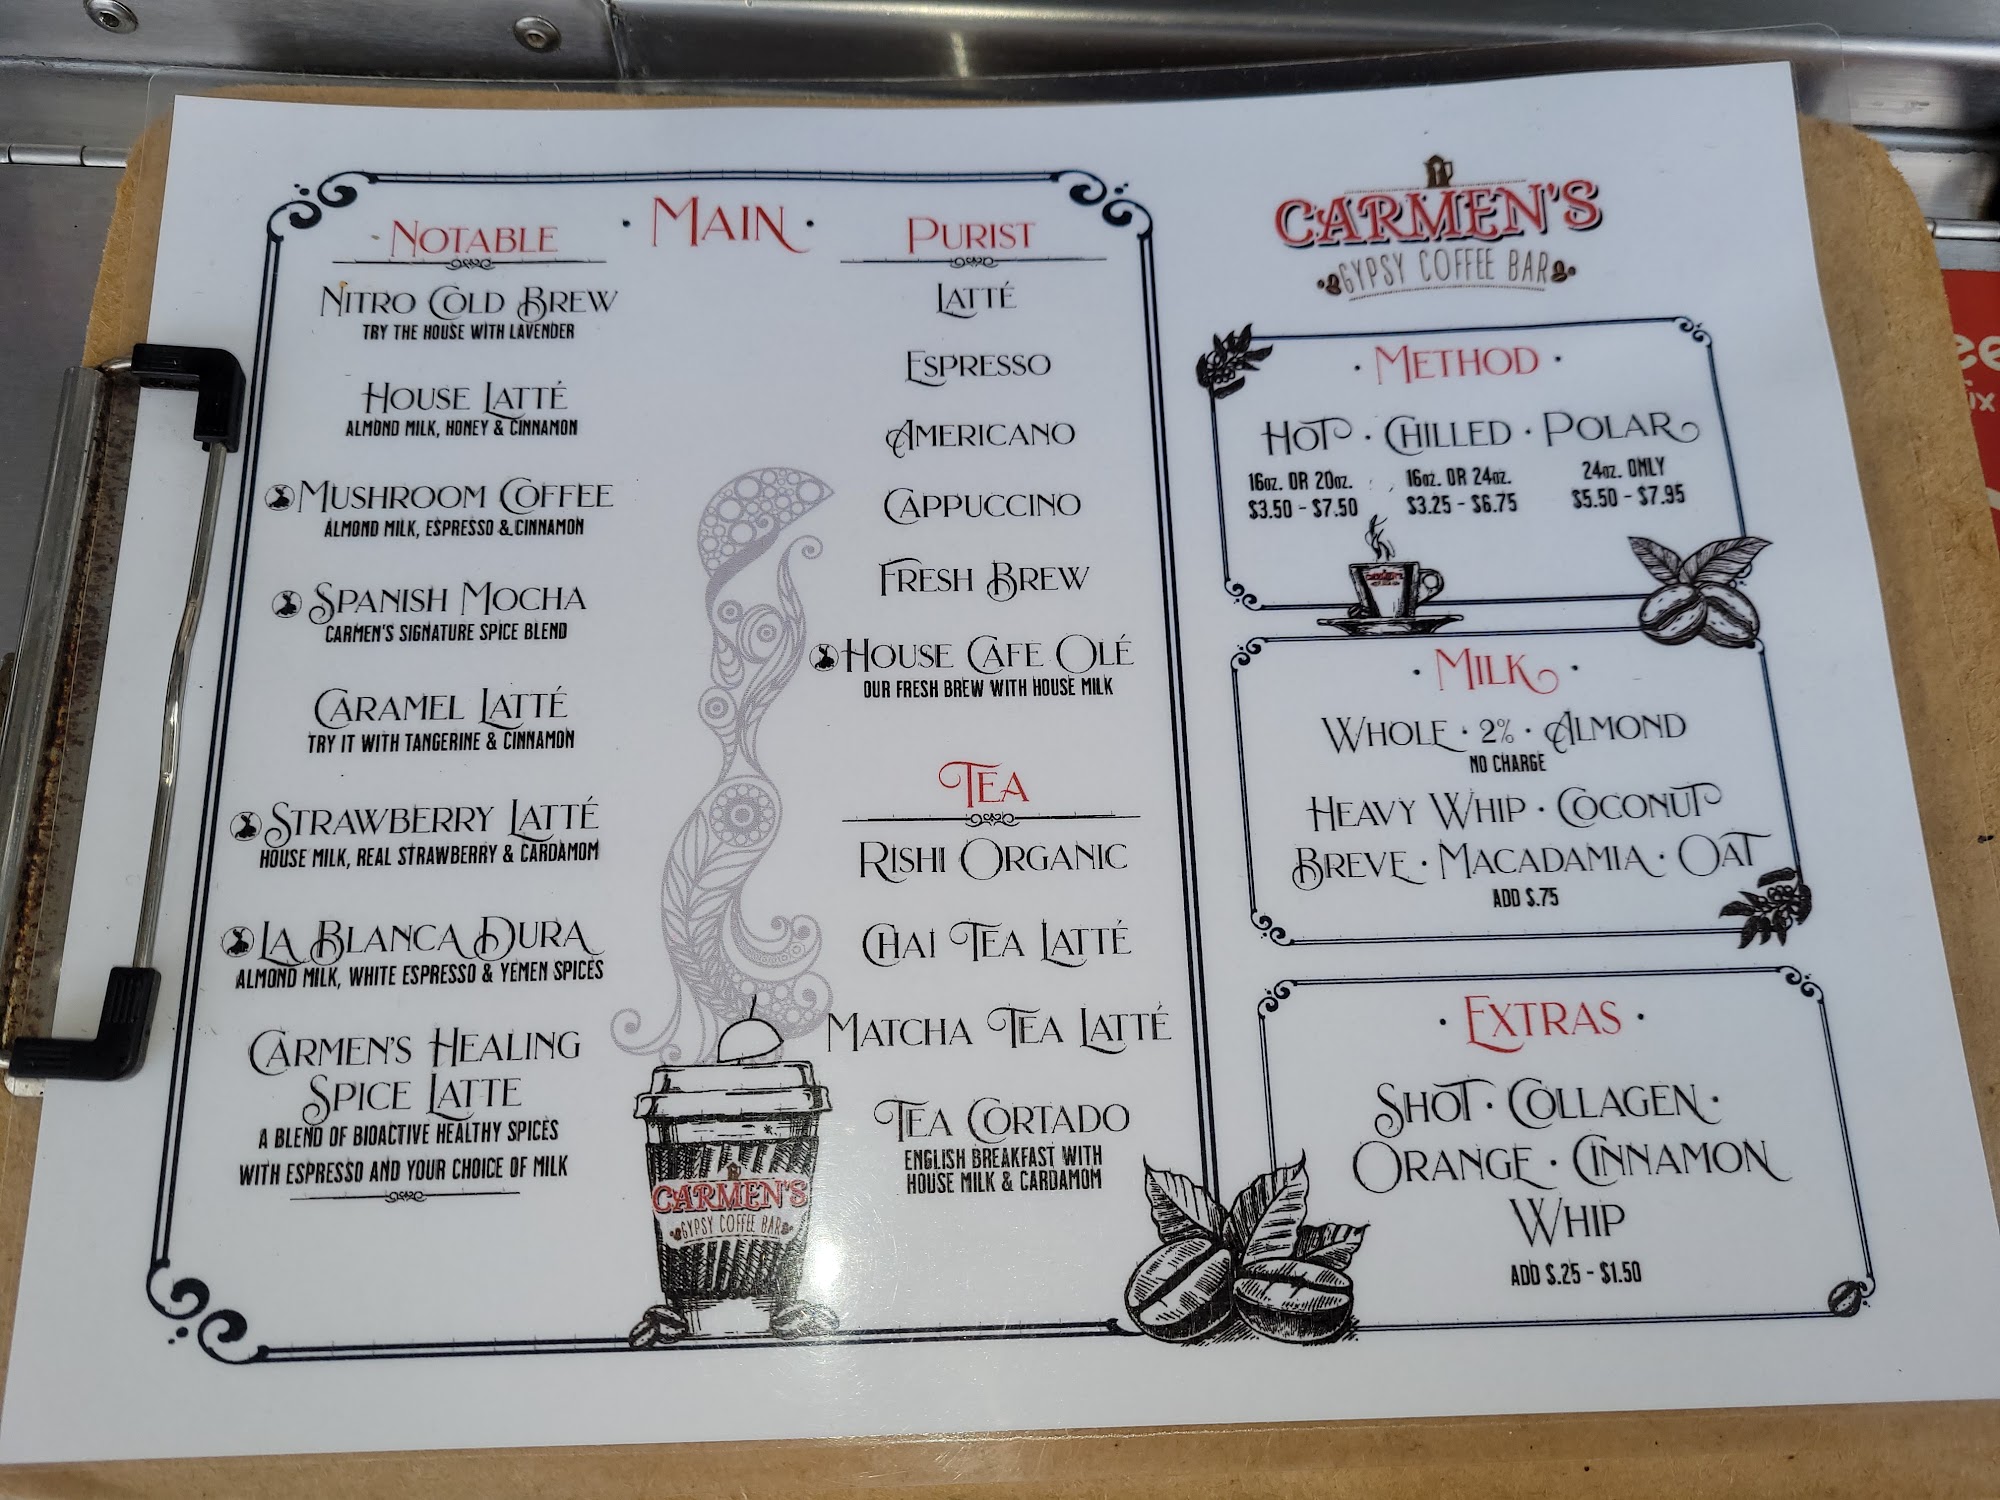 · MAIN ·
NOTABLE
NITRO COLD BREW
TRY THE HOUSE WITH LAVENDER
HOUSE LATTÉ
ALMOND MILK, HONEY & CINNAMON
MUSHROOM COFFEE
ALMOND MILK, ESPRESSO & CINNAMON
SPANISH MOCHA
CARMEN'S SIGNATURE SPICE BLEND
CARAMEL LATTÉ
TRY IT WITH TANGERINE & CINNAMON
STRAWBERRY LATTÉ
HOUSE MILK, REAL STRAWBERRY & CARDAMOM
LA BLANCA DURA
ALMOND MILK, WHITE ESPRESSO & YEMEN SPICES
CARMEN'S HEALING
SPICE LATTE
A BLEND OF BIOACTIVE HEALTHY SPICES
WITH ESPRESSO AND YOUR CHOICE OF MILK
CARMEN'S
GYPSY COFFEE BAR
PURIST
LATTÉ
ESPRESSO
AMERICANO
CAPPUCCINO
FRESH BREW
HOUSE CAFE OLÉ
OUR FRESH BREW WITH HOUSE MILK
TEA
RISHI ORGANIC
CHAI TEA LATTÉ
MATCHA TEA LATTÉ
TEA CORTADO
ENGLISH BREAKFAST WITH
HOUSE MILK & CARDAMOM
CARMEN'S
GYPSY COFFEE BAR
· METHOD ·
HOT · CHILLED · POLAR
16oz. OR 20oz. 16oz. OR 24oz. 24oz. ONLY
$3.50 - $7.50 $3.25 - $6.75 $5.50 - $7.95
· MILK ·
WHOLE · 2% · ALMOND
NO CHARGE
HEAVY WHIP · COCONUT
BREVE · MACADAMIA · OAT
ADD $.75
· EXTRAS ·
SHOT · COLLAGEN ·
ORANGE · CINNAMON
WHIP
ADD $.25 - $1.50